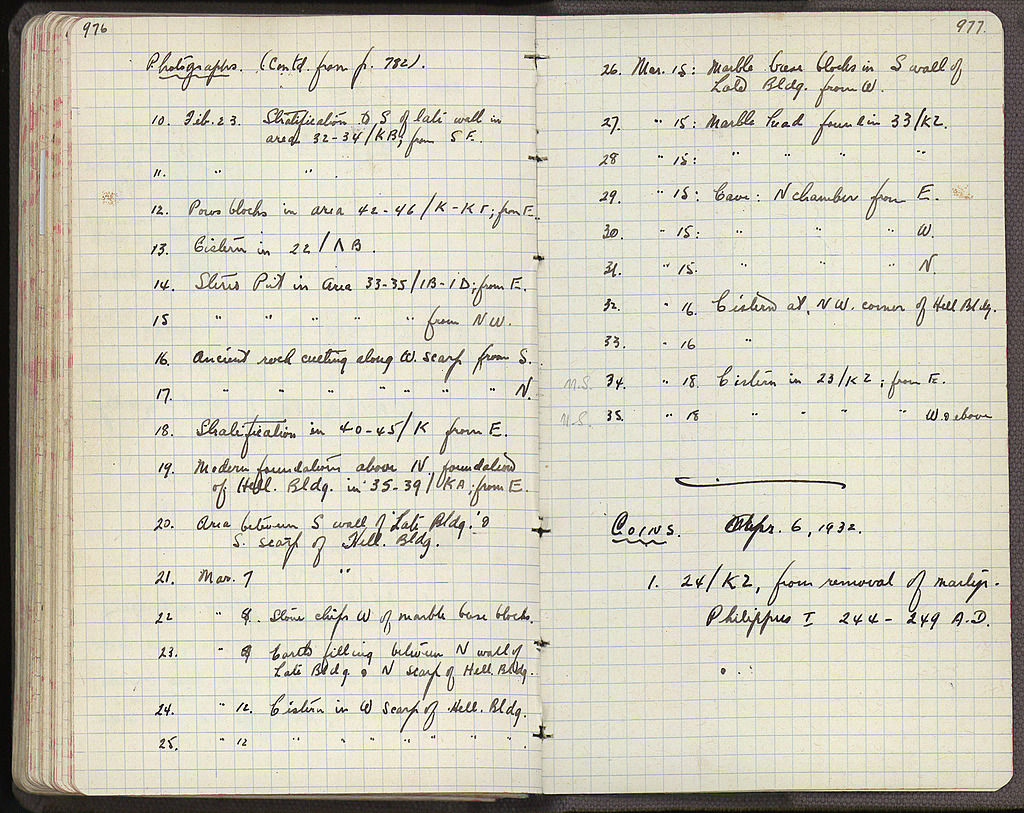 976
Photographs. (Contd. from p. 782).
10. Feb. 23. Stratification to S of late wall in
area 32-34/KB; from SE.
11. " "
12. Poros blocks in area 42-46/K-KΓ; from E.
13. Cistern in 22/ΛB.
14. Stereo Pit in area 33-35/IB-ID; from E.
15 " " " " " from NW.
16. Ancient rock cutting along W. scarp from S.
17. " " " " " " " N.
18. Stratification in 40-45/K from E.
19. Modern foundations above N. foundation
of Hell. Bldg. in 35-39/KA; from E.
20. Area between S wall of 'Late Bldg.' &
S. scarp of Hell. Bldg.
21. Mar. 7 "
22 " 8. Stone chips W of marble base blocks.
23. " 9 Earth filling between N wall of
Late Bldg. & N scarp of Hell. Bldg.
24. " 12. Cistern in W scarp of Hell. Bldg.
25. " 12 " " " " " " " .
977.
26. Mar. 15: Marble base blocks in S wall of
Late Bldg. from W.
27. " 15: Marble head found in 33/KZ.
28 " 15: " " " "
29. " 15: Cave: N chamber from E.
30. " 15: " " " W.
31. " 15. " " " N.
32. " 16. Cistern at NW. corner of Hell Bldg.
33. " 16 "
N.S. 34. " 18. Cistern in 23/KZ; from E.
N.S. 35. " 18 " " " " W. & above
COINS. Apr. 6, 1932.
1. 24/KZ, from removal of
Philippus I 244-249 A.D.